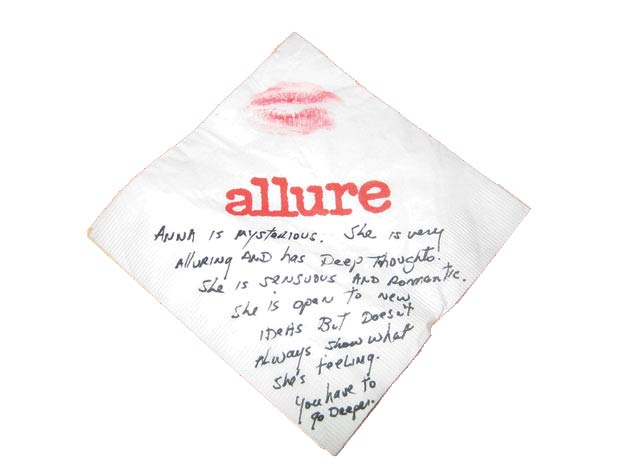 allure
ANNA IS MYSTERIOUS. She is very
Alluring AND has Deep Thoughts.
She is SENSUOUS AND Romantic.
She is open to new
IDEAS But Doesn't
Always show what
She's feeling.
You have to
go Deeper.